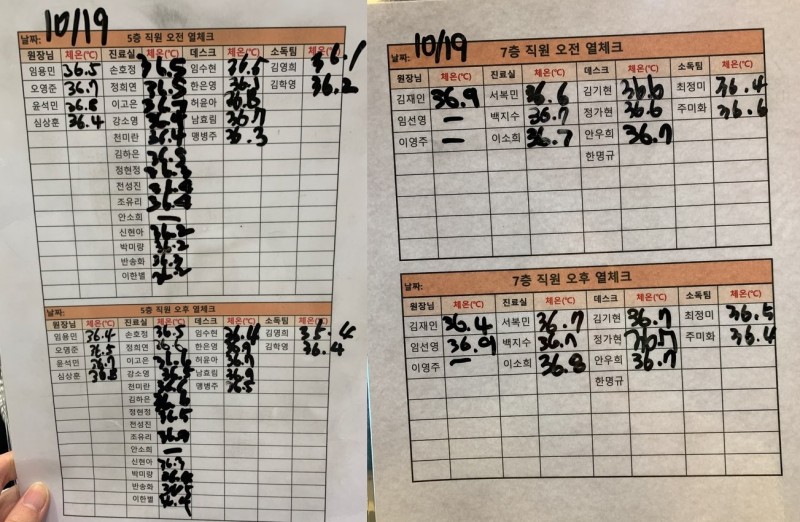 날짜: 10/19 5층 직원 오전 열체크
원장님 체온(℃) 진료실 체온(℃) 데스크 체온(℃) 소독팀 체온(℃)
임용민 36.5 손호정 36.5 임수현 36.5 김영희 36.1
오영준 36.7 정희연 36.5 한은영 김학영 36.2
윤석민 36.8 이고은 허윤아 36.6
심상훈 36.4 강소영 남효림 36.7
천미란 36.4 맹병주 36.3
김하은
정현정
전성진 36.4
조유리 36.4
안소희 —
신현아 36.2
박미량 36.2
반송화 36.3
이한별 36.2
날짜: 5층 직원 오후 열체크
원장님 체온(℃) 진료실 체온(℃) 데스크 체온(℃) 소독팀 체온(℃)
임용민 36.4 손호정 36.5 임수현 36.4 김영희 35.4
오영준 36.5 정희연 한은영 김학영 36.4
윤석민 36.7 이고은 허윤아 36.7
심상훈 36.8 강소영 남효림 36.9
천미란 맹병주 36.5
김하은 36.6
정현정 36.5
전성진
조유리 36.7
안소희 —
신현아 36.7
박미량 36.4
반송화 36.5
이한별 36.4
날짜: 10/19 7층 직원 오전 열체크
원장님 체온(℃) 진료실 체온(℃) 데스크 체온(℃) 소독팀 체온(℃)
김재인 36.9 서복민 36.6 김기현 36.6 최정미 36.4
임선영 — 백지수 36.7 정가현 36.6 주미화 36.6
이영주 — 이소희 36.7 안우희 36.7
한명규
날짜: 7층 직원 오후 열체크
원장님 체온(℃) 진료실 체온(℃) 데스크 체온(℃) 소독팀 체온(℃)
김재인 36.4 서복민 36.7 김기현 36.7 최정미 36.5
임선영 36.9 백지수 36.7 정가현 36.7 주미화 36.4
이영주 — 이소희 36.8 안우희 36.7
한명규